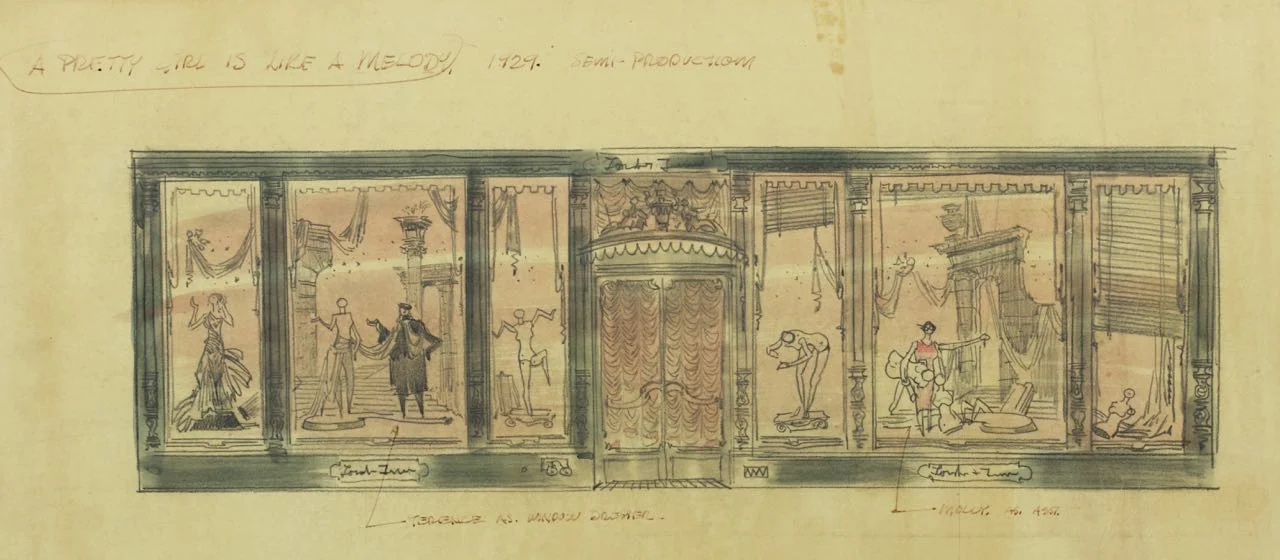 A PRETTY GIRL IS LIKE A MELODY, 1929. SEMI-PRODUCTION
TERENCE AS. WINDOW DRESSER.
MOLLY. AS. ASST.